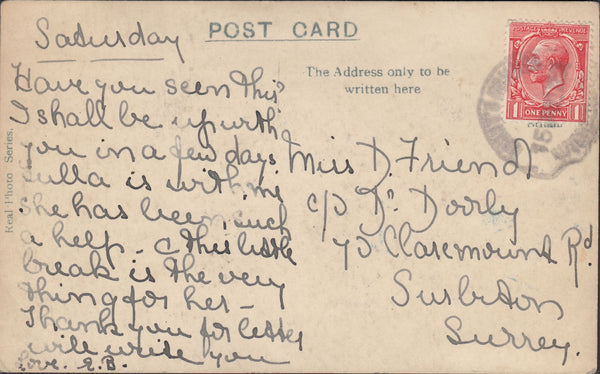 Saturday
POST CARD
Have you seen this
I shall be up with
you in a few days.
Lulla is with me
She has been such
a help - & this little
break is the very
thing for her -
Thank you for letter
will write you
Love. E.B.
The Address only to be
written here
Miss D. Friend
c/o Dr. Doorly
Claremount Rd
Surbiton
Surrey.
Real Photo Series.
POSTAGE REVENUE
ONE PENNY
1 1